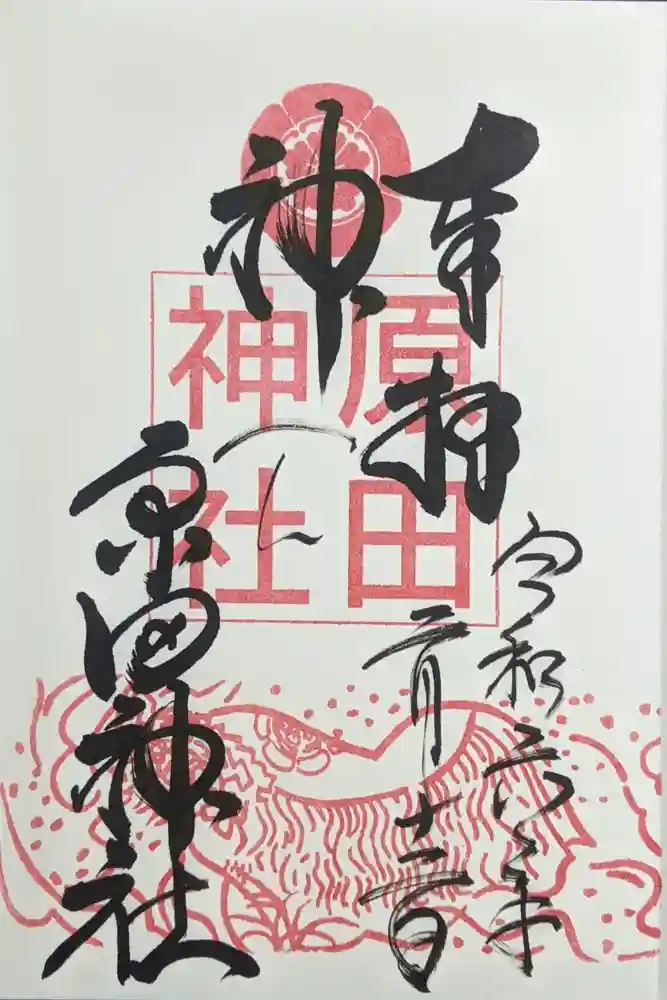 奉拝
令和六年
二月十二日
神
原田
神社
原田神社